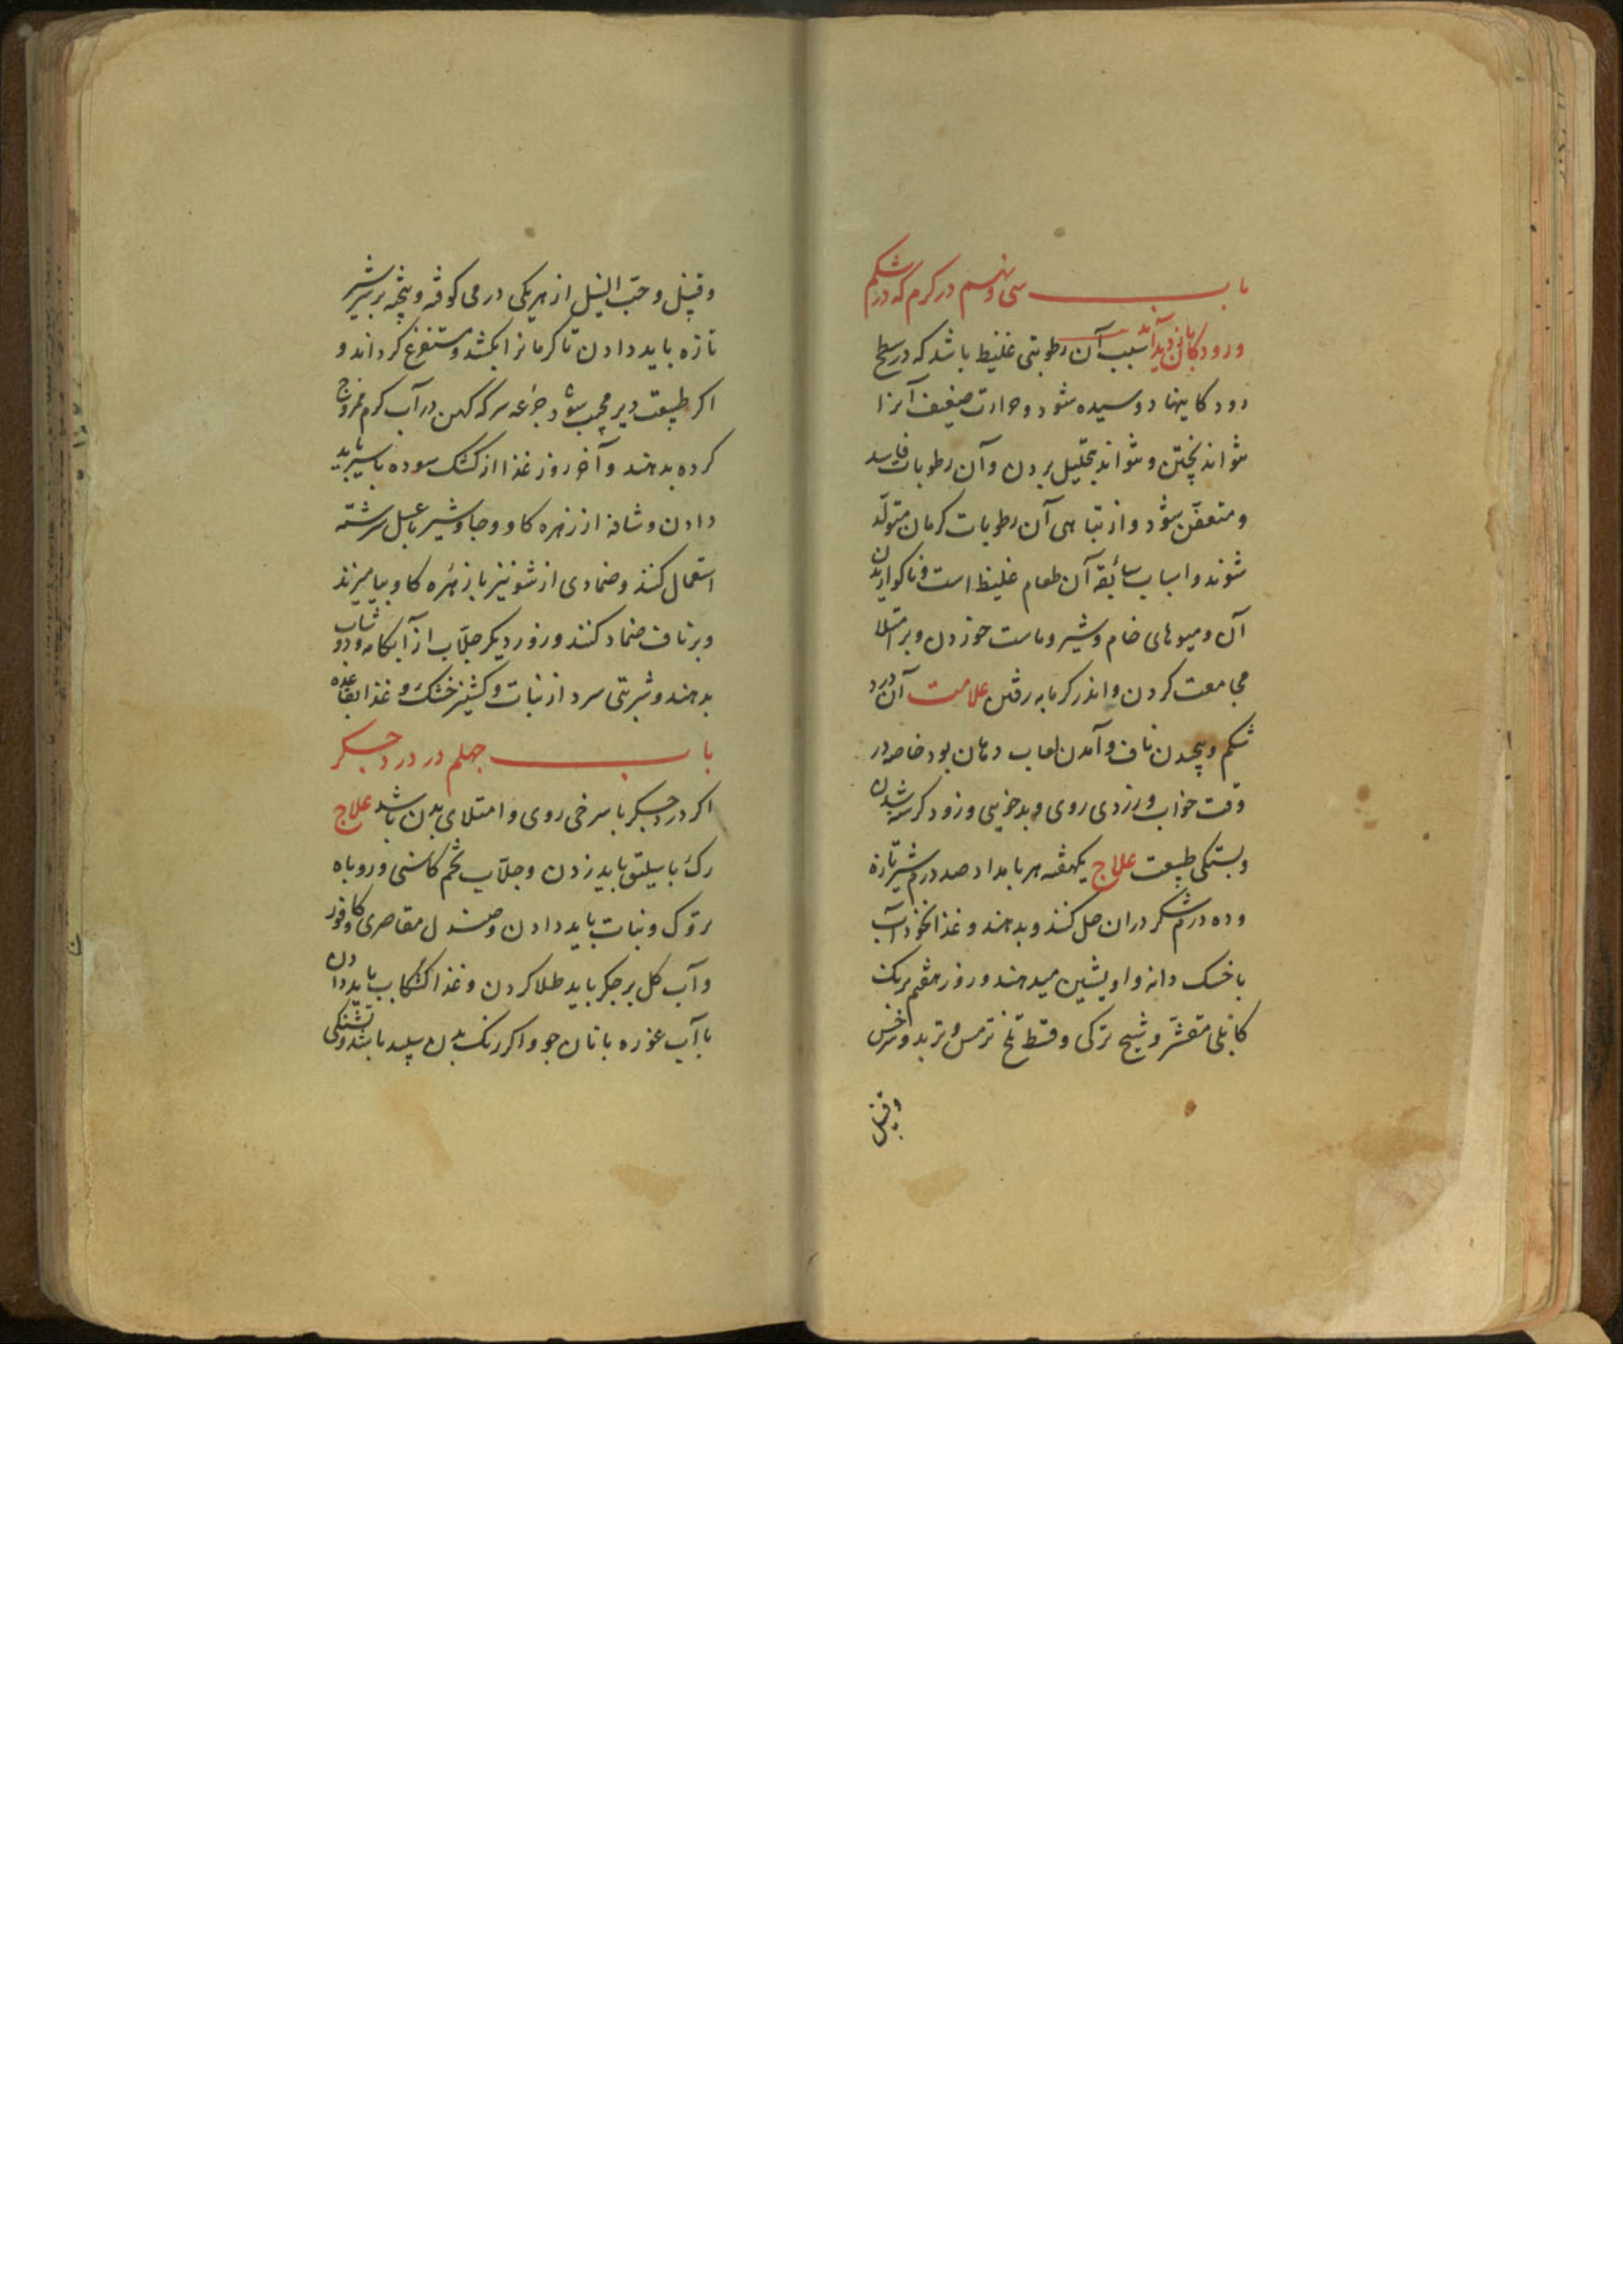 باب سی و نهم در کرم که در شکم
و رودکانی دید آید سبب آن رطوبتی غلیظ باشد که در سطح
رودکانیها دوسیده شود و حرارت ضعیف آنرا
نتواند پختن و نتواند تحلیل بردن و آن رطوبات فاسد
و متعفن شود و از تباهی آن رطوبات کرمان متولد
شوند و اسباب سابقه آن طعام غلیظ است و ناکواریدن
آن و میوهای خام و شیر و ماست خوردن و بر امتلا
مجامعت کردن و اندر کرمابه رفتن علامت آن درد
شکم و پیچیدن ناف و آمدن لعاب دهان بود خاصه در
وقت خواب و زردی روی و بدخویی و زود کرسنه شدن
و بستکی طبیعت علاج یکهفته هر بامداد صد درم شیر تازه
و ده درم شکر دران حل کنند و بدهند و غذا نخوداب
با خسک دانه و اویشین میدهند و روز هفتم برنک
کابلی مقشر و شیح ترکی و قسط تلخ ترمس و تربد و سرخس
وقنبیل
وقنبیل و حب النیل از هر یکی درمی کوفته و پخته بر سر شیر
تازه باید دادن تا کرمانرا بکشد و مستفرغ کرداند و
اکر طبیعت دیر مجیب شود جرعه سرکه کهن در آب کرم ممزوج
کرده بدهند و آخر روز غذا از کشک سوده با شیر باید
دادن و شافه از زهره کاو و جاوشیر با عسل سرشته
استعمال کنند و ضمادی از شونیز با زهره کاو بیامیزند
و بر ناف ضماد کنند و روز دیکر جلاب از آبکامه و دوشاب
بدهند و شربتی سرد از نبات و کشنیز خشک و غذا بقاعده
باب چهلم در درد جکر
اکر درد جکر با سرخی روی و امتلای بدن باشد علاج
رک باسیلق باید زدن و جلاب تخم کاسنی و روباه
تروک و نبات باید دادن و صندل مقاصری و کافور
و آب کل بر جکر باید طلا کردن و غذا کشکاب باید دادن
با آب غوره با نان جو و اکر رنک بدن سپید باشد و تشنکی